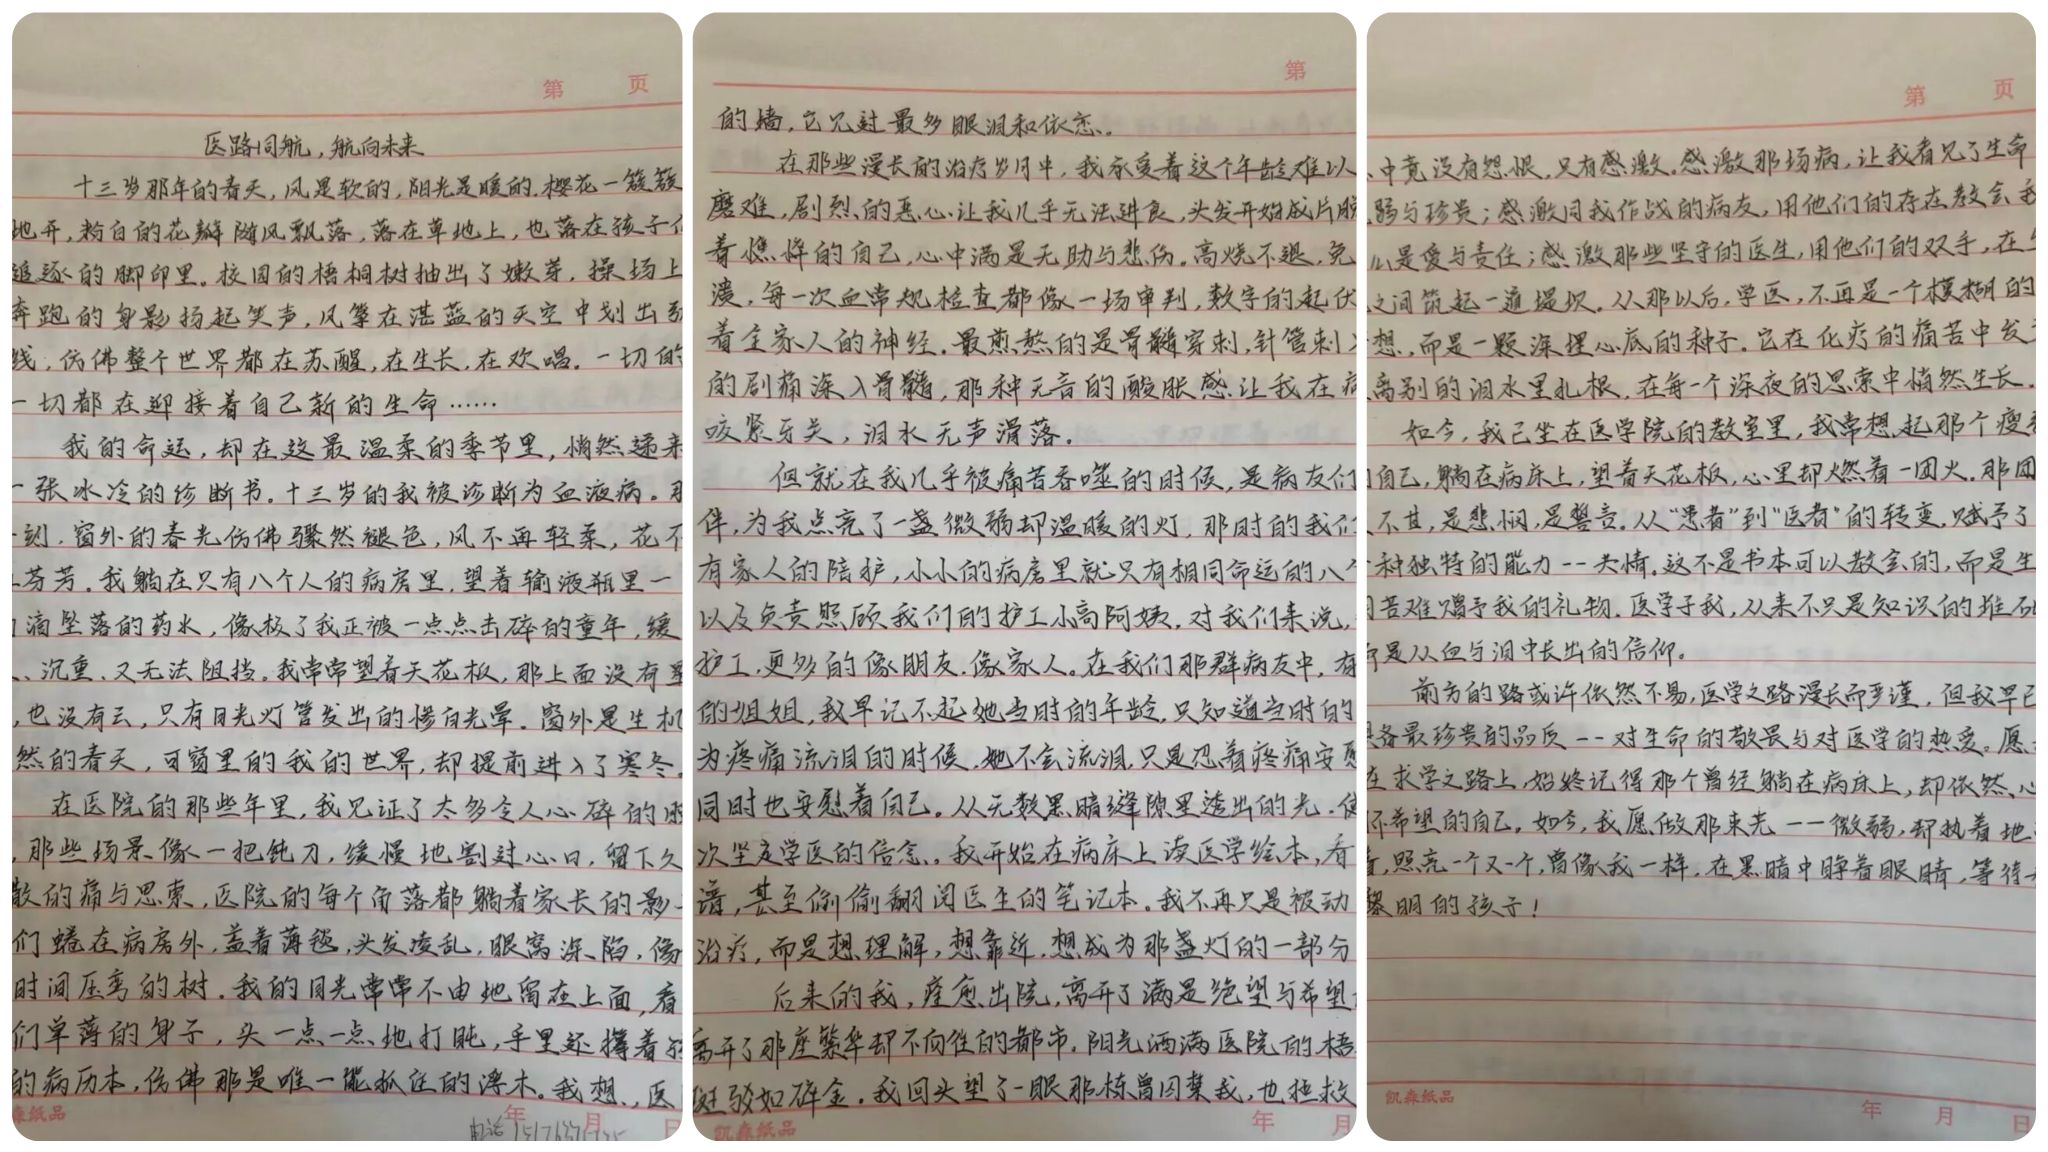 第 页
医路同航，航向未来
十三岁那年的春天，风是软的，阳光是暖的，樱花一簇簇
地开，粉白的花瓣随风飘落，落在草地上，也落在孩子们
追逐的脚印里。校园的梧桐树抽出了嫩芽，操场上
奔跑的身影扬起笑声，风筝在湛蓝的天空中划出
线，仿佛整个世界都在苏醒，在生长，在欢唱。一切的
一切都在迎接着自己新的生命……
我的命运，却在这最温柔的季节里，悄然递来
一张冰冷的诊断书。十三岁的我被诊断为血液病。那
一刻，窗外的春光仿佛骤然褪色，风不再轻柔，花不
芬芳。我躺在只有八个人的病房里，望着输液瓶里一
滴坠落的药水，像极了我正被一点点击碎的童年，缓
、沉重、又无法阻挡。我常常望着天花板，那上面没有星
，也没有云，只有日光灯管发出的惨白光晕。窗外是生机
然的春天，可窗里的我的世界，却提前进入了寒冬。
在医院的那些年里，我见证了太多令人心碎的
，那些场景像一把钝刀，缓慢地割过心口，留下久
散的痛与思索，医院的每个角落都躺着家长的影
们蜷在病房外，盖着薄毯，头发凌乱，眼窝深陷，像
时间压弯的树。我的目光常常不由地留在上面，看
们单薄的身子，头一点一点地打盹，手里还攥着
的病历本，仿佛那是唯一能抓住的浮木。我想，医
凯森纸品
年 月 日
电话
第
的墙，它见过最多眼泪和依恋。
在那些漫长的治疗岁月中，我承受着这个年龄难以
磨难，剧烈的恶心让我几乎无法进食，头发开始成片脱
着憔悴的自己，心中满是无助与悲伤。高烧不退，免
溃，每一次血常规检查都像一场审判，数字的起伏
着全家人的神经。最煎熬的是骨髓穿刺，针管刺入
的剧痛深入骨髓，那种无言的酸胀感让我在病
咬紧牙关，泪水无声滑落。
但就在我几乎被痛苦吞噬的时候，是病友们
伴，为我点亮了一盏微弱却温暖的灯，那时的我们
有家人的陪护，小小的病房里就只有相同命运的八个
以及负责照顾我们的护工小高阿姨。对我们来说，
护工，更多的像朋友，像家人。在我们那群病友中，有
的姐姐，我早记不起她当时的年龄，只知道当时的
为疼痛流泪的时候，她不会流泪，只是忍着疼痛安慰
同时也安慰着自己。从无数黑暗缝隙里透出的光，使
次坚定学医的信念。我开始在病床上读医学绘本，看
谱，甚至偷偷翻阅医生的笔记本。我不再只是被动
治疗，而是想理解，想靠近，想成为那盏灯的一部分
后来的我，痊愈出院，离开了满是绝望与希望
离开了那座繁华却不向往的都市。阳光洒满医院的梧
斑驳如碎金。我回头望了一眼那栋曾囚禁我，也拯救
凯森纸品
年 月
第 页
中竟没有怨恨，只有感激。感激那场病，让我看见了生命
弱与珍贵；感激同我作战的病友，用他们的存在教会我
么是爱与责任；感激那些坚守的医生，用他们的双手，在生
之间筑起一道堤坝。从那以后，学医，不再是一个模糊的
想，而是一颗深埋心底的种子。它在化疗的痛苦中发芽
离别的泪水里扎根，在每一个深夜的思索中悄然生长。
如今，我已坐在医学院的教室里，我常想起那个瘦
自己，躺在病床上，望着天花板，心里却燃着一团火。那团
不甘，是悲悯，是誓言。从“患者”到“医者”的转变，赋予了
种独特的能力--共情。这不是书本可以教会的，而是生
苦难赠予我的礼物。医学于我，从来不只是知识的堆砌
而是从血与泪中长出的信仰。
前方的路或许依然不易，医学之路漫长而严谨，但我早已
具备最珍贵的品质--对生命的敬畏与对医学的热爱。愿
在求学之路上，始终记得那个曾经躺在病床上，却依然心
怀希望的自己。如今，我愿做那束光--微弱，却执着地
着，照亮一个又一个，曾像我一样，在黑暗中睁着眼睛，等待
黎明的孩子！
凯森纸品
年 月 日